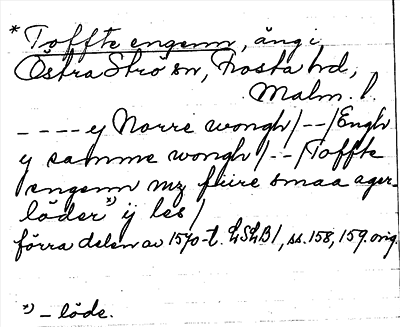 * Toffte engenn, äng i
Östra Strö sn, Frosta hd,
Malm. l.
---- y Norre wongh/--/Engh
y samme wongh/--/Toffte
engenn mz fiire smaa ager-
löder*) ij les/
förra delen av 1570-t. LSLB1, ss. 158, 159. orig.
*) - löde.